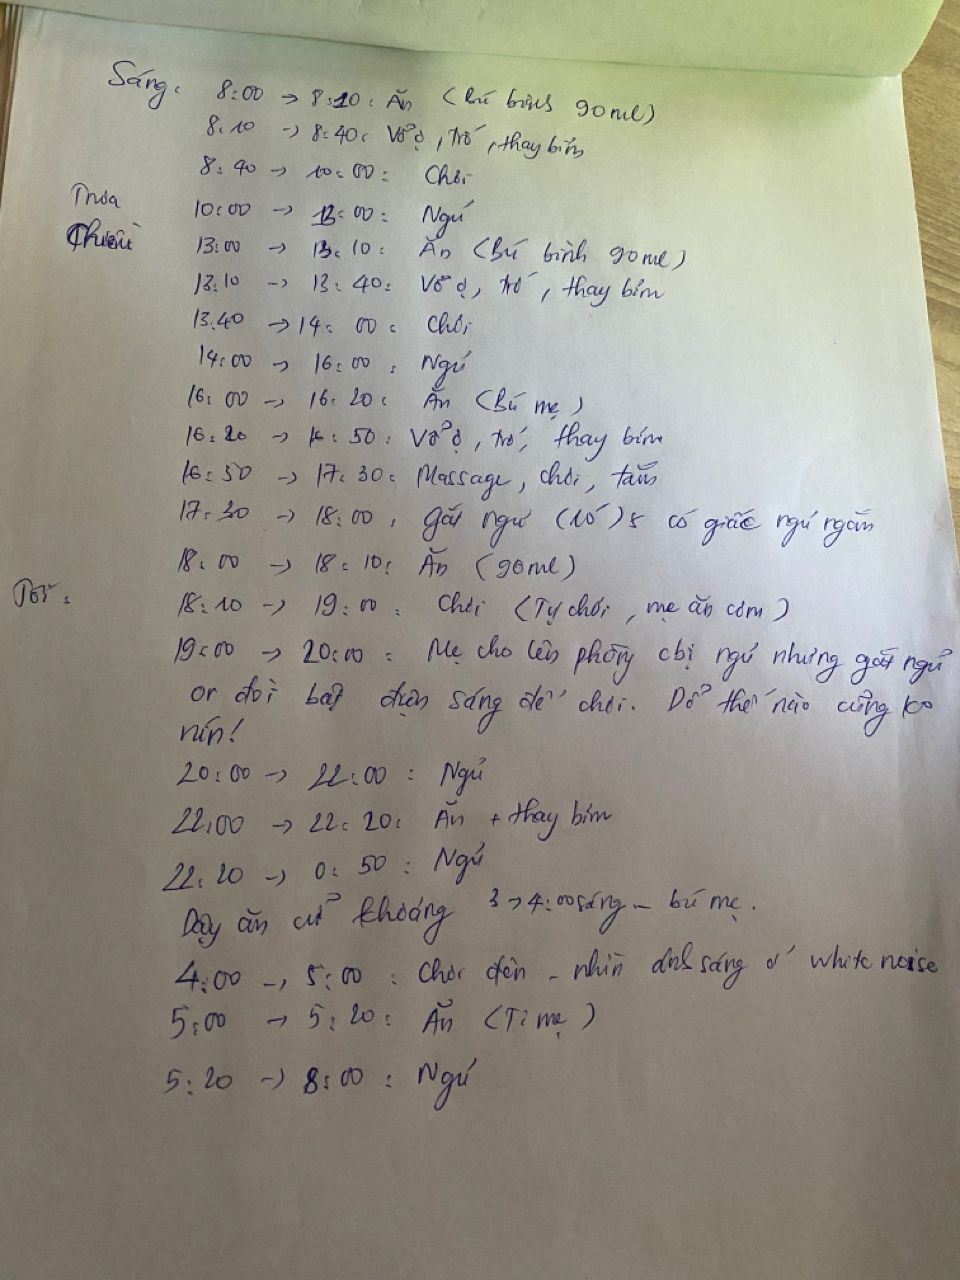 Sáng: 8:00 → 8:10: Ăn (Bú bình 90ml)
8:10 → 8:40: Vỗ ợ, trớ, thay bỉm
8:40 → 10:00: Chơi
Trưa 10:00 → 13:00: Ngủ
Chiều 13:00 → 13:10: Ăn (Bú bình 90ml)
13:10 → 13:40: Vỗ ợ, trớ, thay bỉm
13:40 → 14:00: Chơi
14:00 → 16:00: Ngủ
16:00 → 16:20: Ăn (Bú mẹ)
16:20 → 16:50: Vỗ ợ, trớ, thay bỉm
16:50 → 17:30: Massage, chơi, tắm
17:30 → 18:00: gắt ngủ có giấc ngủ ngắn
18:00 → 18:10: Ăn (90ml)
Tối: 18:10 → 19:00: Chơi (Tự chơi, mẹ ăn cơm)
19:00 → 20:00: Mẹ cho lên phòng cbị ngủ nhưng gắt ngủ
or đòi bật điện sáng để chơi. Dỗ thế nào cũng ko
nín!
20:00 → 22:00: Ngủ
22:00 → 22:20: Ăn + thay bỉm
22:20 → 0:50: Ngủ
Dậy ăn cữ khoảng 3 → 4:00 sáng - bú mẹ.
4:00 → 5:00: Chơi đèn - nhìn ánh sáng ở white noise
5:00 → 5:20: Ăn (Ti mẹ)
5:20 → 8:00: Ngủ